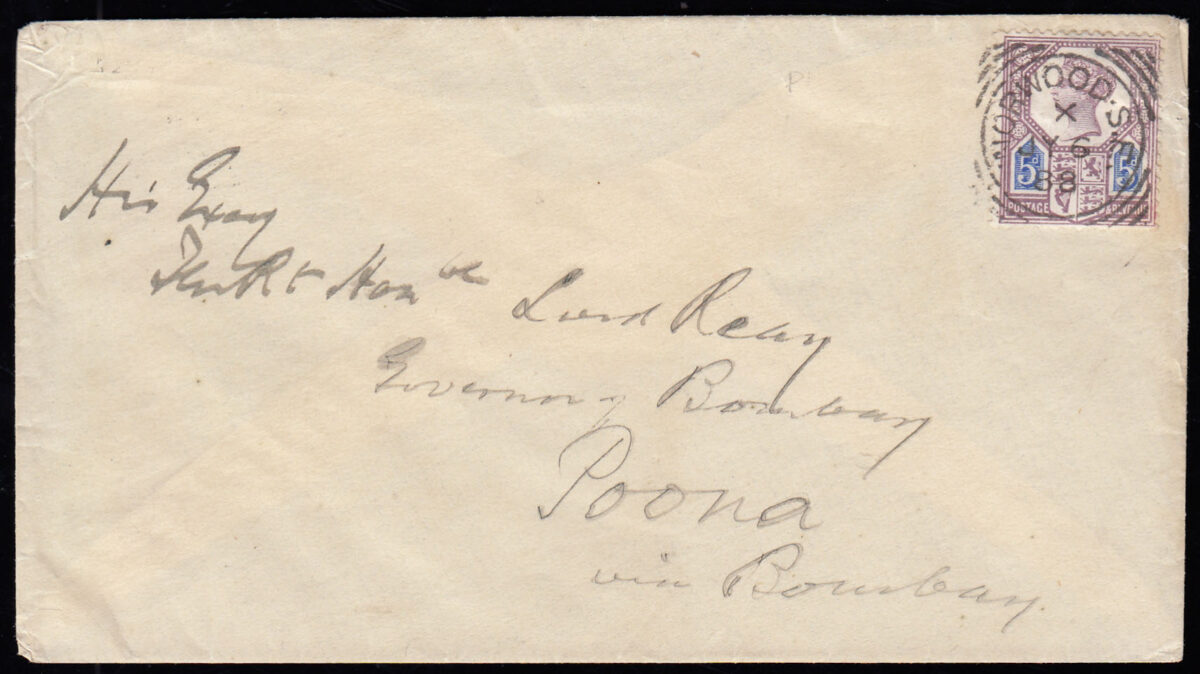 NORWOOD.S.E.
X
6
88
5D 5D
POSTAGE & REVENUE
His Excy
The Rt Honble Lord Reay
Governor of Bombay
Poona
via Bombay.